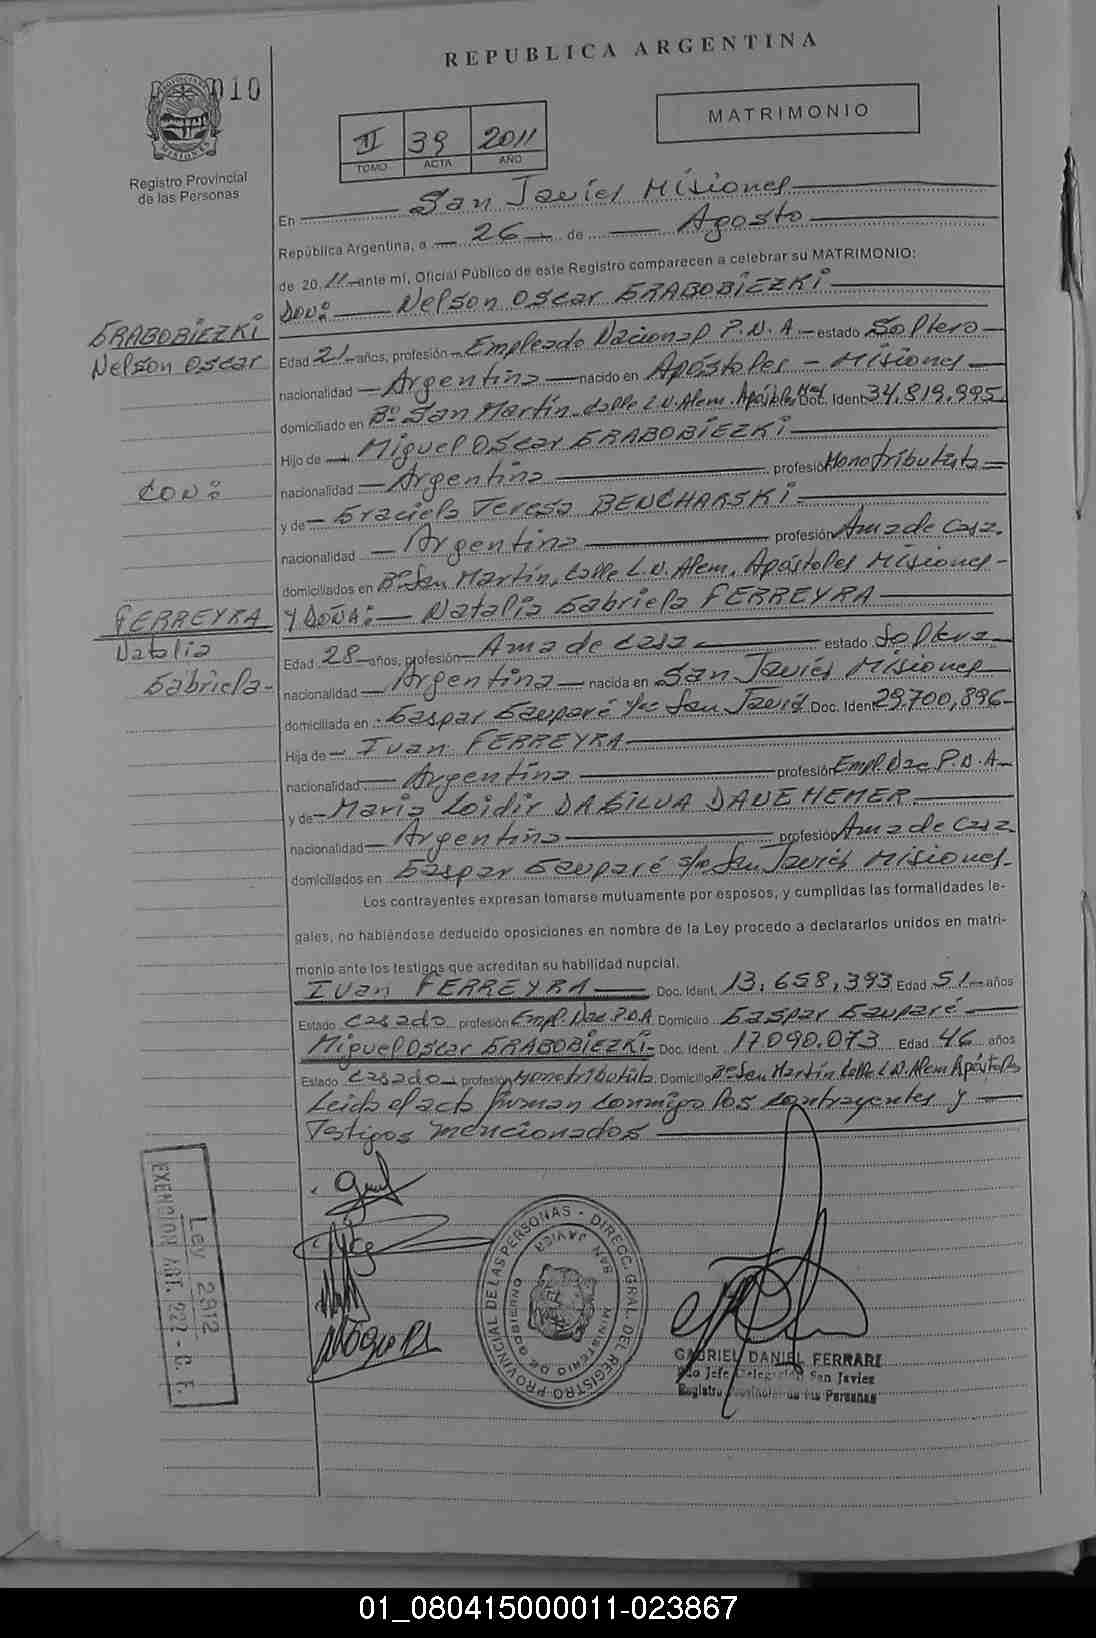 REPUBLICA ARGENTINA
010
PROVINCIA
MISIONES
Registro Provincial
de las Personas
II 39 2011
TOMO ACTA AÑO
MATRIMONIO
En San Javier Misiones
República Argentina, a 26 de Agosto
de 20 11 ante mi, Oficial Público de este Registro comparecen a celebrar su MATRIMONIO:
DON: Nelson Oscar GRABOBIEZKI
GRABOBIEZKI
Nelson Oscar
Edad 21 años, profesión Empleado Nacional P.N.A. estado Soltero
nacionalidad Argentina nacido en Apóstoles - Misiones
domiciliado en Bº San Martín Calle L.N. Alem. Apóstoles Mnes Doc. Ident 34.819.995
Hijo de Miguel Oscar GRABOBIEZKI
CON:
nacionalidad Argentina profesión Monotributista
y de Graciela Teresa BENCHARSKI
nacionalidad Argentina profesión Ama de Casa.
domiciliados en Bº San Martín, Calle L.N. Alem. Apóstoles Misiones
FERREYRA
Natalia
Gabriela
Y DOÑA: Natalia Gabriela FERREYRA
Edad 28 años, profesión Ama de Casa estado Soltera
nacionalidad Argentina nacida en San Javier Misiones
domiciliada en Gaspar Gauparé s/nº San Javier Doc. Ident 29.700.896
Hija de Ivan FERREYRA
nacionalidad Argentina profesión Empl. Nac P.N.A
y de Maria Loidir DA SILVA DANEHEMER
nacionalidad Argentina profesión Ama de Casa
domiciliados en Gaspar Gauparé s/nº San Javier Misiones
Los contrayentes expresan tomarse mutuamente por esposos, y cumplidas las formalidades le-
gales, no habiéndose deducido oposiciones en nombre de la Ley procedo a declararlos unidos en matri-
monio ante los testigos que acreditan su habilidad nupcial.
Ivan FERREYRA Doc. Ident. 13.658.393 Edad 51 años
Estado Casado profesión Empl. Nac P.N.A Domicilio Gaspar Gauparé
Miguel Oscar GRABOBIEZKI Doc. Ident. 17.090.073 Edad 46 años
Estado Casado profesión Monotributista Domicilio Bº San Martín Calle L.N. Alem Apóstoles
Leida el acta firman conmigo los contrayentes y
Testigos mencionados
EXENCION ART. 222 - C. F.
Ley 2912
DIRECC. GRAL. DEL REGISTRO PROVINCIAL DE LAS PERSONAS
MINISTERIO DE GOBIERNO
SAN JAVIER
GABRIEL DANIEL FERRARI
Jefe Delegación San Javier
Registro Provincial de las Personas
01_080415000011-023867